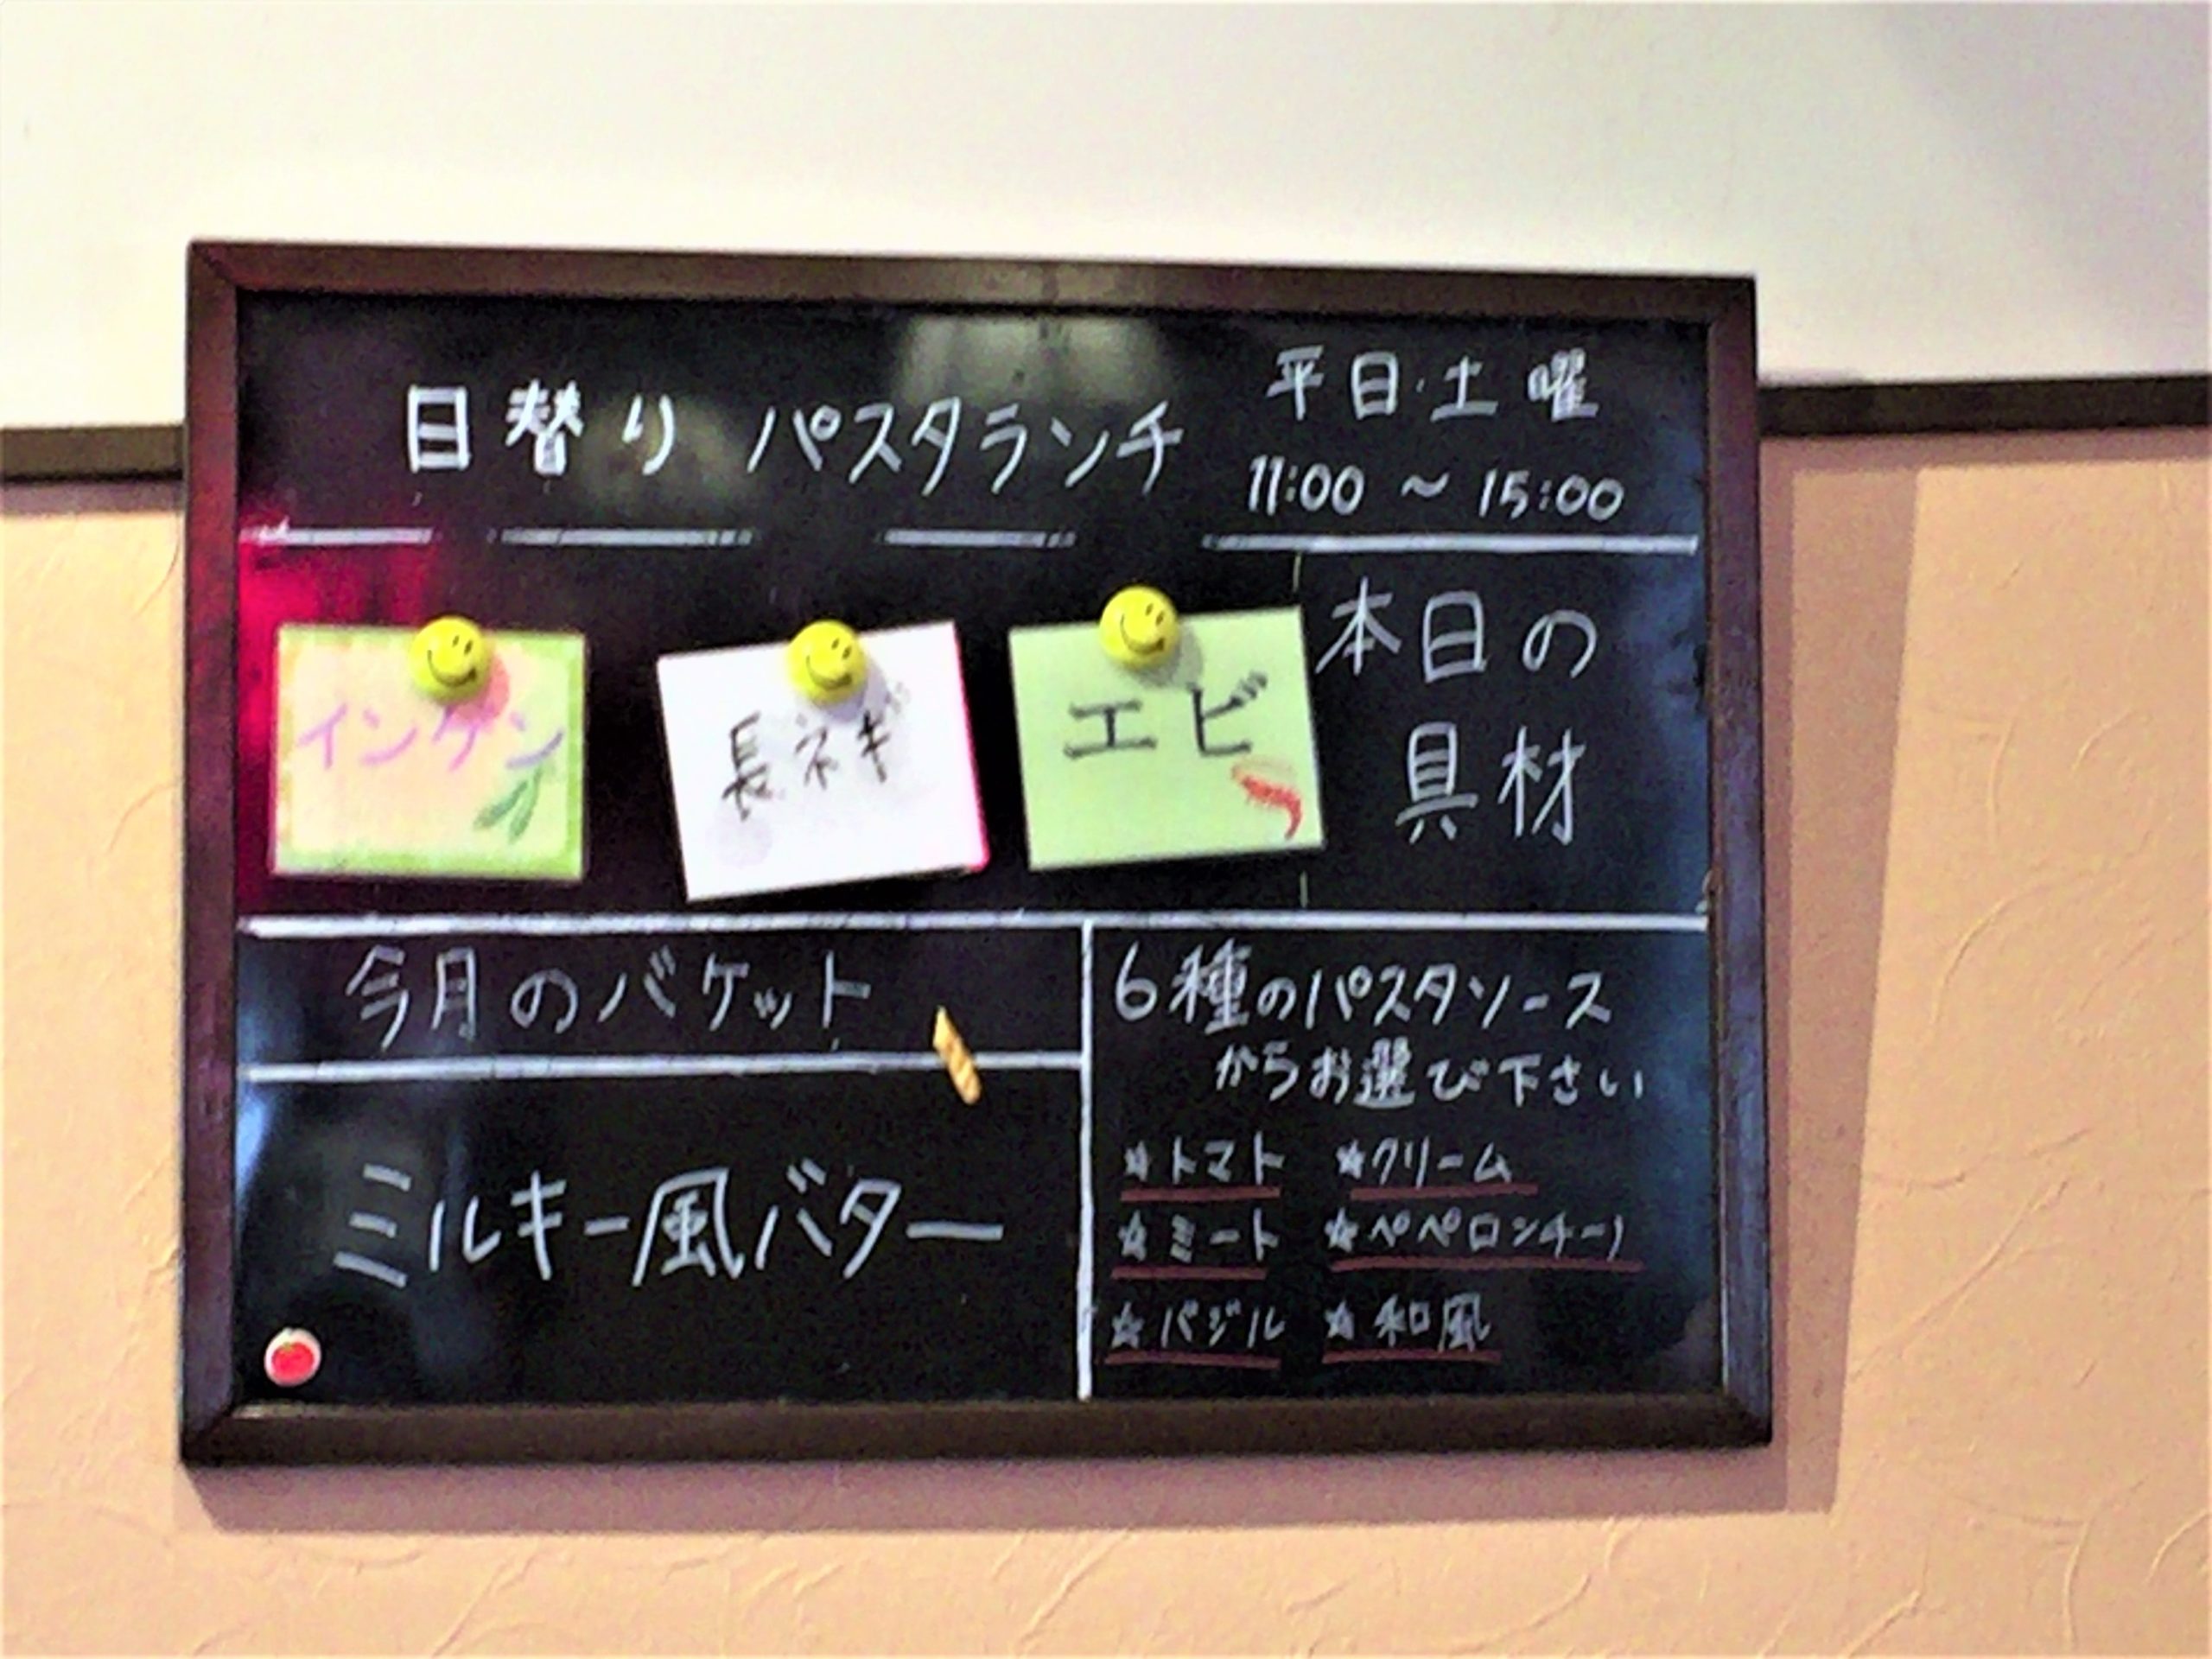 日替り パスタランチ
平日・土曜
11:00 ～ 15:00
本日の
具材
エビ
長ネギ
インゲン
今月のバケット
ミルキー風バター
6種のパスタソース
からお選び下さい
★トマト ★クリーム
★ミート ★ペペロンチーノ
★バジル ★和風